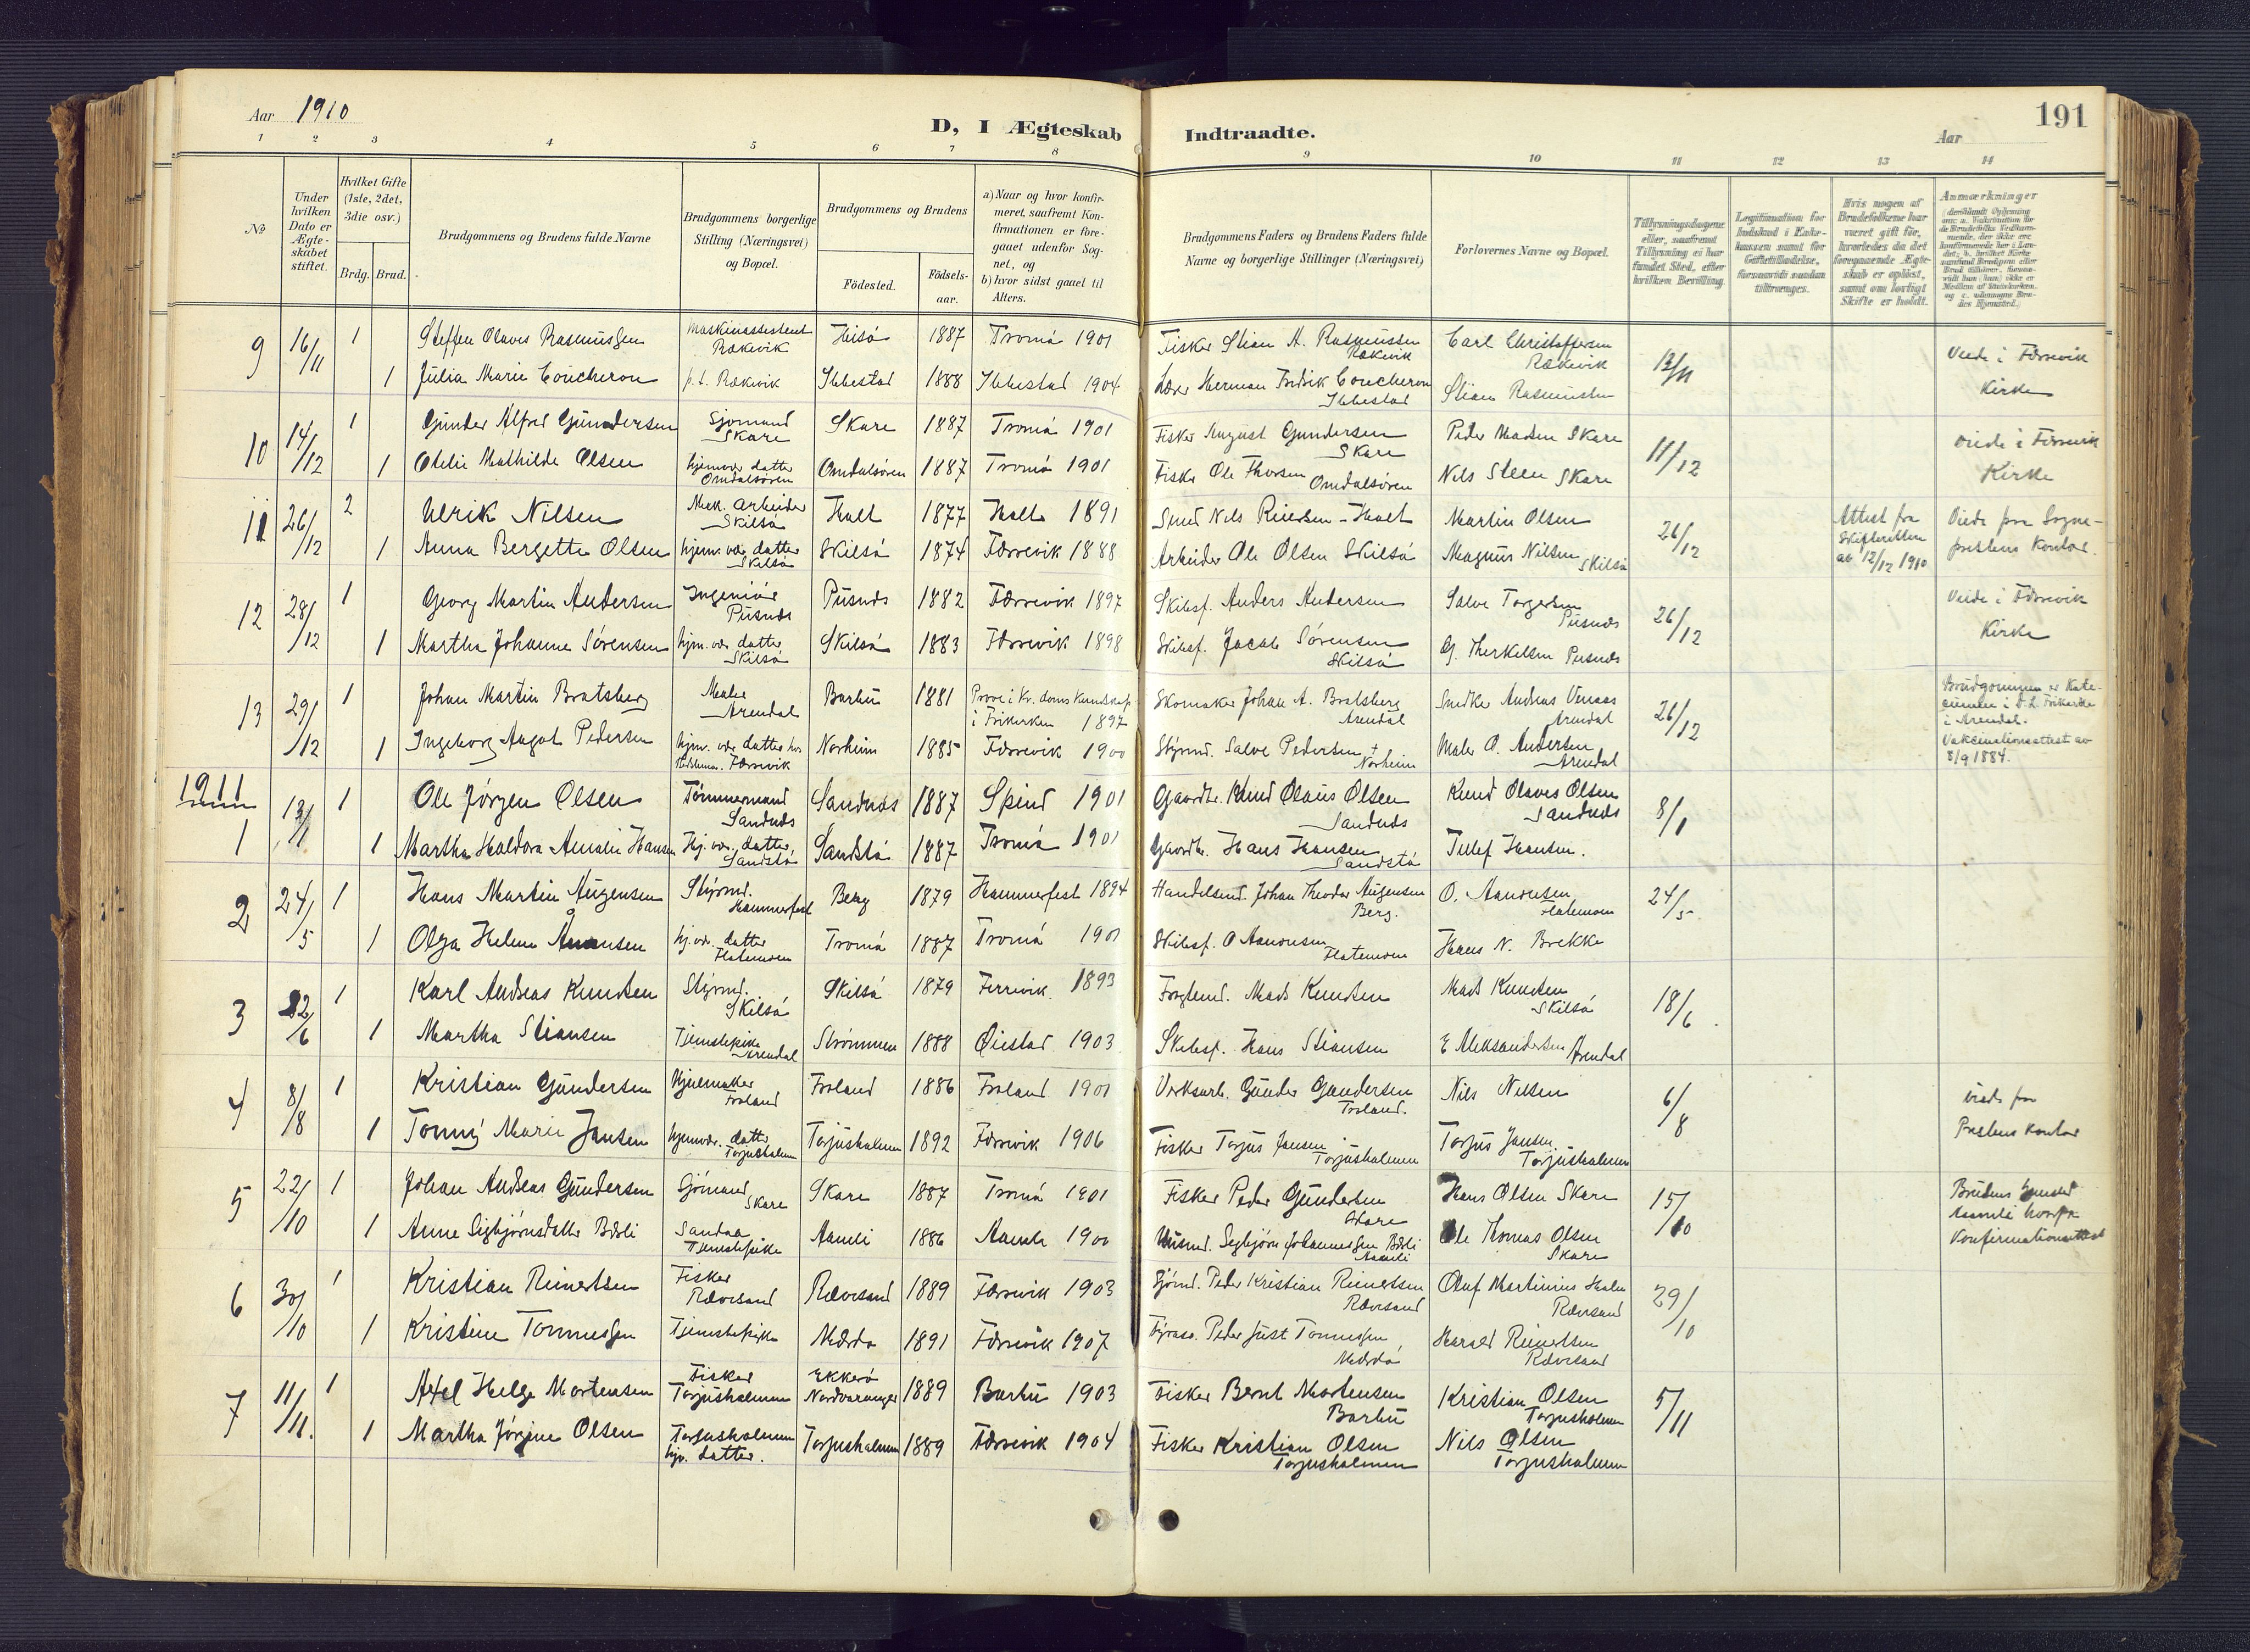 Aar 1910
D, I Ægteskab Indtraadte.
Aar
191
1 2 3 4 5 6 7 8 9 10 11 12 13 14
No
Under hvilken Dato er Ægteskabet stiftet.
Hvilket Gifte (1ste, 2det, 3die osv.)
Brdg. Brud.
Brudgommens og Brudens fulde Navne
Brudgommens borgerlige Stilling (Næringsvei) og Bopæl.
Brudgommens og Brudens
Födested.
Födselsaar.
a) Naar og hvor konfirmeret, saafremt Konfirmationen er foregaaet udenfor Sognet, og
b) hvor sidst gaaet til Alters.
Brudgommens Faders og Brudens Faders fulde Navne og borgerlige Stillinger (Næringsvei)
Forlovernes Navne og Bopæl.
Tillysningsdagene eller, saafremt Tillysning ei har fundet Sted, efter hvilken Bevilling.
Legitimation for Indskud i Enkekassen samt for Giftetilladelse, forsaavidt saadan tiltrænges.
Hvis nogen af Brudefolkene har været gift för, hvorledes da det foregaaende Ægteskab er oplöst, samt om lovligt Skifte er holdt.
Anmærkninger
9 16/11 1 Steffen Olaves Rasmussen Maskinassistent Rækevik Hisö 1887 Tromö 1901 Fisker Stian A. Rasmussen Rækevik Carl Christoffersen Rækevik 13/11 Viede i Færvevik Kirke
1 Julia Marie Coucheron p.t. Rækevik Ibbestad 1888 Ibbestad 1904 Lærer Herman Fredrik Coucheron Ibbestad Stian Rasmussen
10 14/12 1 Gunder Alfred Gundersen Sjömand Skare Skare 1887 Tromö 1901 Fisker August Gundersen Skare Peder Madsen Skare 11/12 Viede i Færvevik Kirke
1 Otelie Mathilde Olsen hjemmev. datter Omdalsören Omdalsören 1887 Tromö 1901 Fisker Ole Thorsen Omdalsören Nils Steen Skare
11 26/12 2 Ulrik Nilsen Mek. arbeider Skilsö Holt 1877 Holt 1891 Smed Nils Reiersen - Holt Martin Olsen 26/12 Attest fra Skifteretten av 12/12 1910 Viede paa Sogneprestens Kontor.
1 Anna Bergette Olsen hjem. vær. datter Skilsö Skilsö 1874 Færvevik 1888 Arbeider Ole Olsen Skilsö Magnus Nilsen Skilsö
12 28/12 1 Georg Martin Andersen Ingeniör Pusnes Pusnes 1882 Færvevik 1897 Skibsf. Anders Andersen Salve Torgersen Pusnes 26/12 Viede i Færvevik Kirke
1 Martha Johanne Sörensen hjem. vær. datter Skilsö Skilsö 1883 Færvevik 1898 Skibsf. Jacob Sörensen Skilsö G. Therkelsen Pusnes
13 29/12 1 Johan Martin Bratsberg Maler Arendal Barbu 1881 Pröve i Kr. doms Kundskap i Frikirken 1897 Skomaker Johan A. Bratsberg Arendal Snedker Andreas Arendal 26/12 Brudgommen er i E. L. Frikirke i Arendal. Vakcinationsattest av 8/9 1884.
1 Ingeborg Aagot Pedersen hjem. vær. datter Færvevik Norheim 1885 Færvevik 1900 Styrmd. Salve Pedersen + Norheim Maler O. Andersen Arendal
1911
1 13/1 1 Ole Jörgen Olsen Tömmermand Sandnes Sandnes 1887 Spind 1901 Gaardbr. Knud Olaus Olsen Sandnes Knud Olaves Olsen Sandnes 8/1
1 Martha Haldora Amalie Hansen Hj. vær. datter Sandstö Sandstö 1887 Tromö 1901 Gaardbr. Hans Hansen Sandstö Tellef Hansen.
2 24/5 1 Hans Martin Augensen Styrmd. Hammerfest Berg 1879 Hammerfest 1894 Handelsmd. Johan Theodor Augensen Berg. O. Aanonsen Flatemoen 24/5.
1 Olga Helene Ånonsen hj. vær. datter Flatemoen Tromö 1887 Tromö 1901 Skibsf. O Aanonsen Flatemoen Hans N. Brekke
3 22/6 1 Karl Andreas Knudsen Styrmd. Skilsö Skilsö 1879 Færvevik 1893 Mads Knudsen Mads Knudsen Skilsö 18/6.
1 Martha Stiansen Tjenestepike Arendal Strömmen 1888 Öiestad 1903 Skibsf. Hans Stiansen E Aleksandersen Arendal
4 8/8 1 Kristian Gundersen Hjulmaker Froland Froland 1886 Froland 1901 Verksarb. Gunder Gundersen Froland. Nils Nilsen 6/8 Viede paa Prestens kontor
1 Tonny Marie Jansen hjemvær. datter Torjusholmen Torjusholmen 1892 Færvevik 1906 Fisker Torjus Jansen Torjusholmen Torjus Jansen Torjusholmen
5 22/10 1 Johan Andreas Gundersen Sjömand Skare Skare 1887 Tromö 1901 Fisker Peder Gundersen Skare Hans Olsen Skare 15/10 Brudens hjemsted Aamli hvorfra Konfirmationsattest
1 Anne Sigbjörnsdatter Bæsli Sandaa Tjenestepike Aamli 1886 Aamli 1900 Husmd. Sigbjörn Johannessen Bæsli Aamli Ole Thomas Olsen Skare
6 30/10 1 Kristian Reinertsen Fisker Rævesand Rævesand 1889 Færvevik 1903 Sjömd. Peder Kristian Reinertsen Rævesand Oluf Martinius Holm Rævesand 29/10
1 Kristine Tönnessen Tjenestepike Mærdö 1891 Færvevik 1907 Fyrass. Peder Just Tönnessen Mærdö Harald Reinertsen Rævesand
7 11/11. 1 Axel Helge Mortensen Fisker Torjusholmen Ekkerö Nordvaranger 1889 Barbu 1903 Fisker Bernt Mortensen Barbu Kristian Olsen Torjusholmen 5/11
1 Martha Jörgine Olsen Torjusholmen hjv. datter. Torjusholmen 1889 Færvevik 1904 Fisker Kristian Olsen Torjusholmen Nils Olsen Torjusholmen